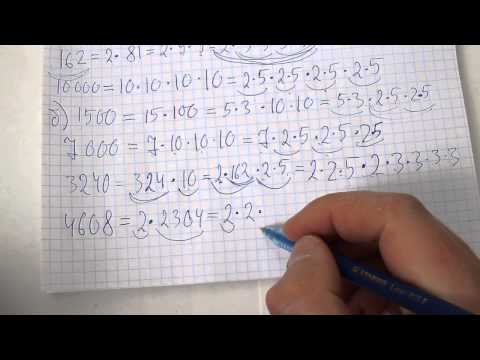 162 = 2 · 81 = 2 ·
10000 = 10 · 10 · 10 · 10 = 2 · 5 · 2 · 5 · 2 · 5 · 2 · 5
б) 1500 = 15 · 100 = 5 · 3 · 10 · 10 = 5 · 3 · 2 · 5 · 2 · 5
7000 = 7 · 10 · 10 · 10 = 7 · 2 · 5 · 2 · 5 · 2 5
3240 = 324 · 10 = 2 · 162 · 2 · 5 = 2 · 2 · 5 · 2 · 3 · 3 · 3 · 3
4608 = 2 · 2304 = 2 · 2 ·